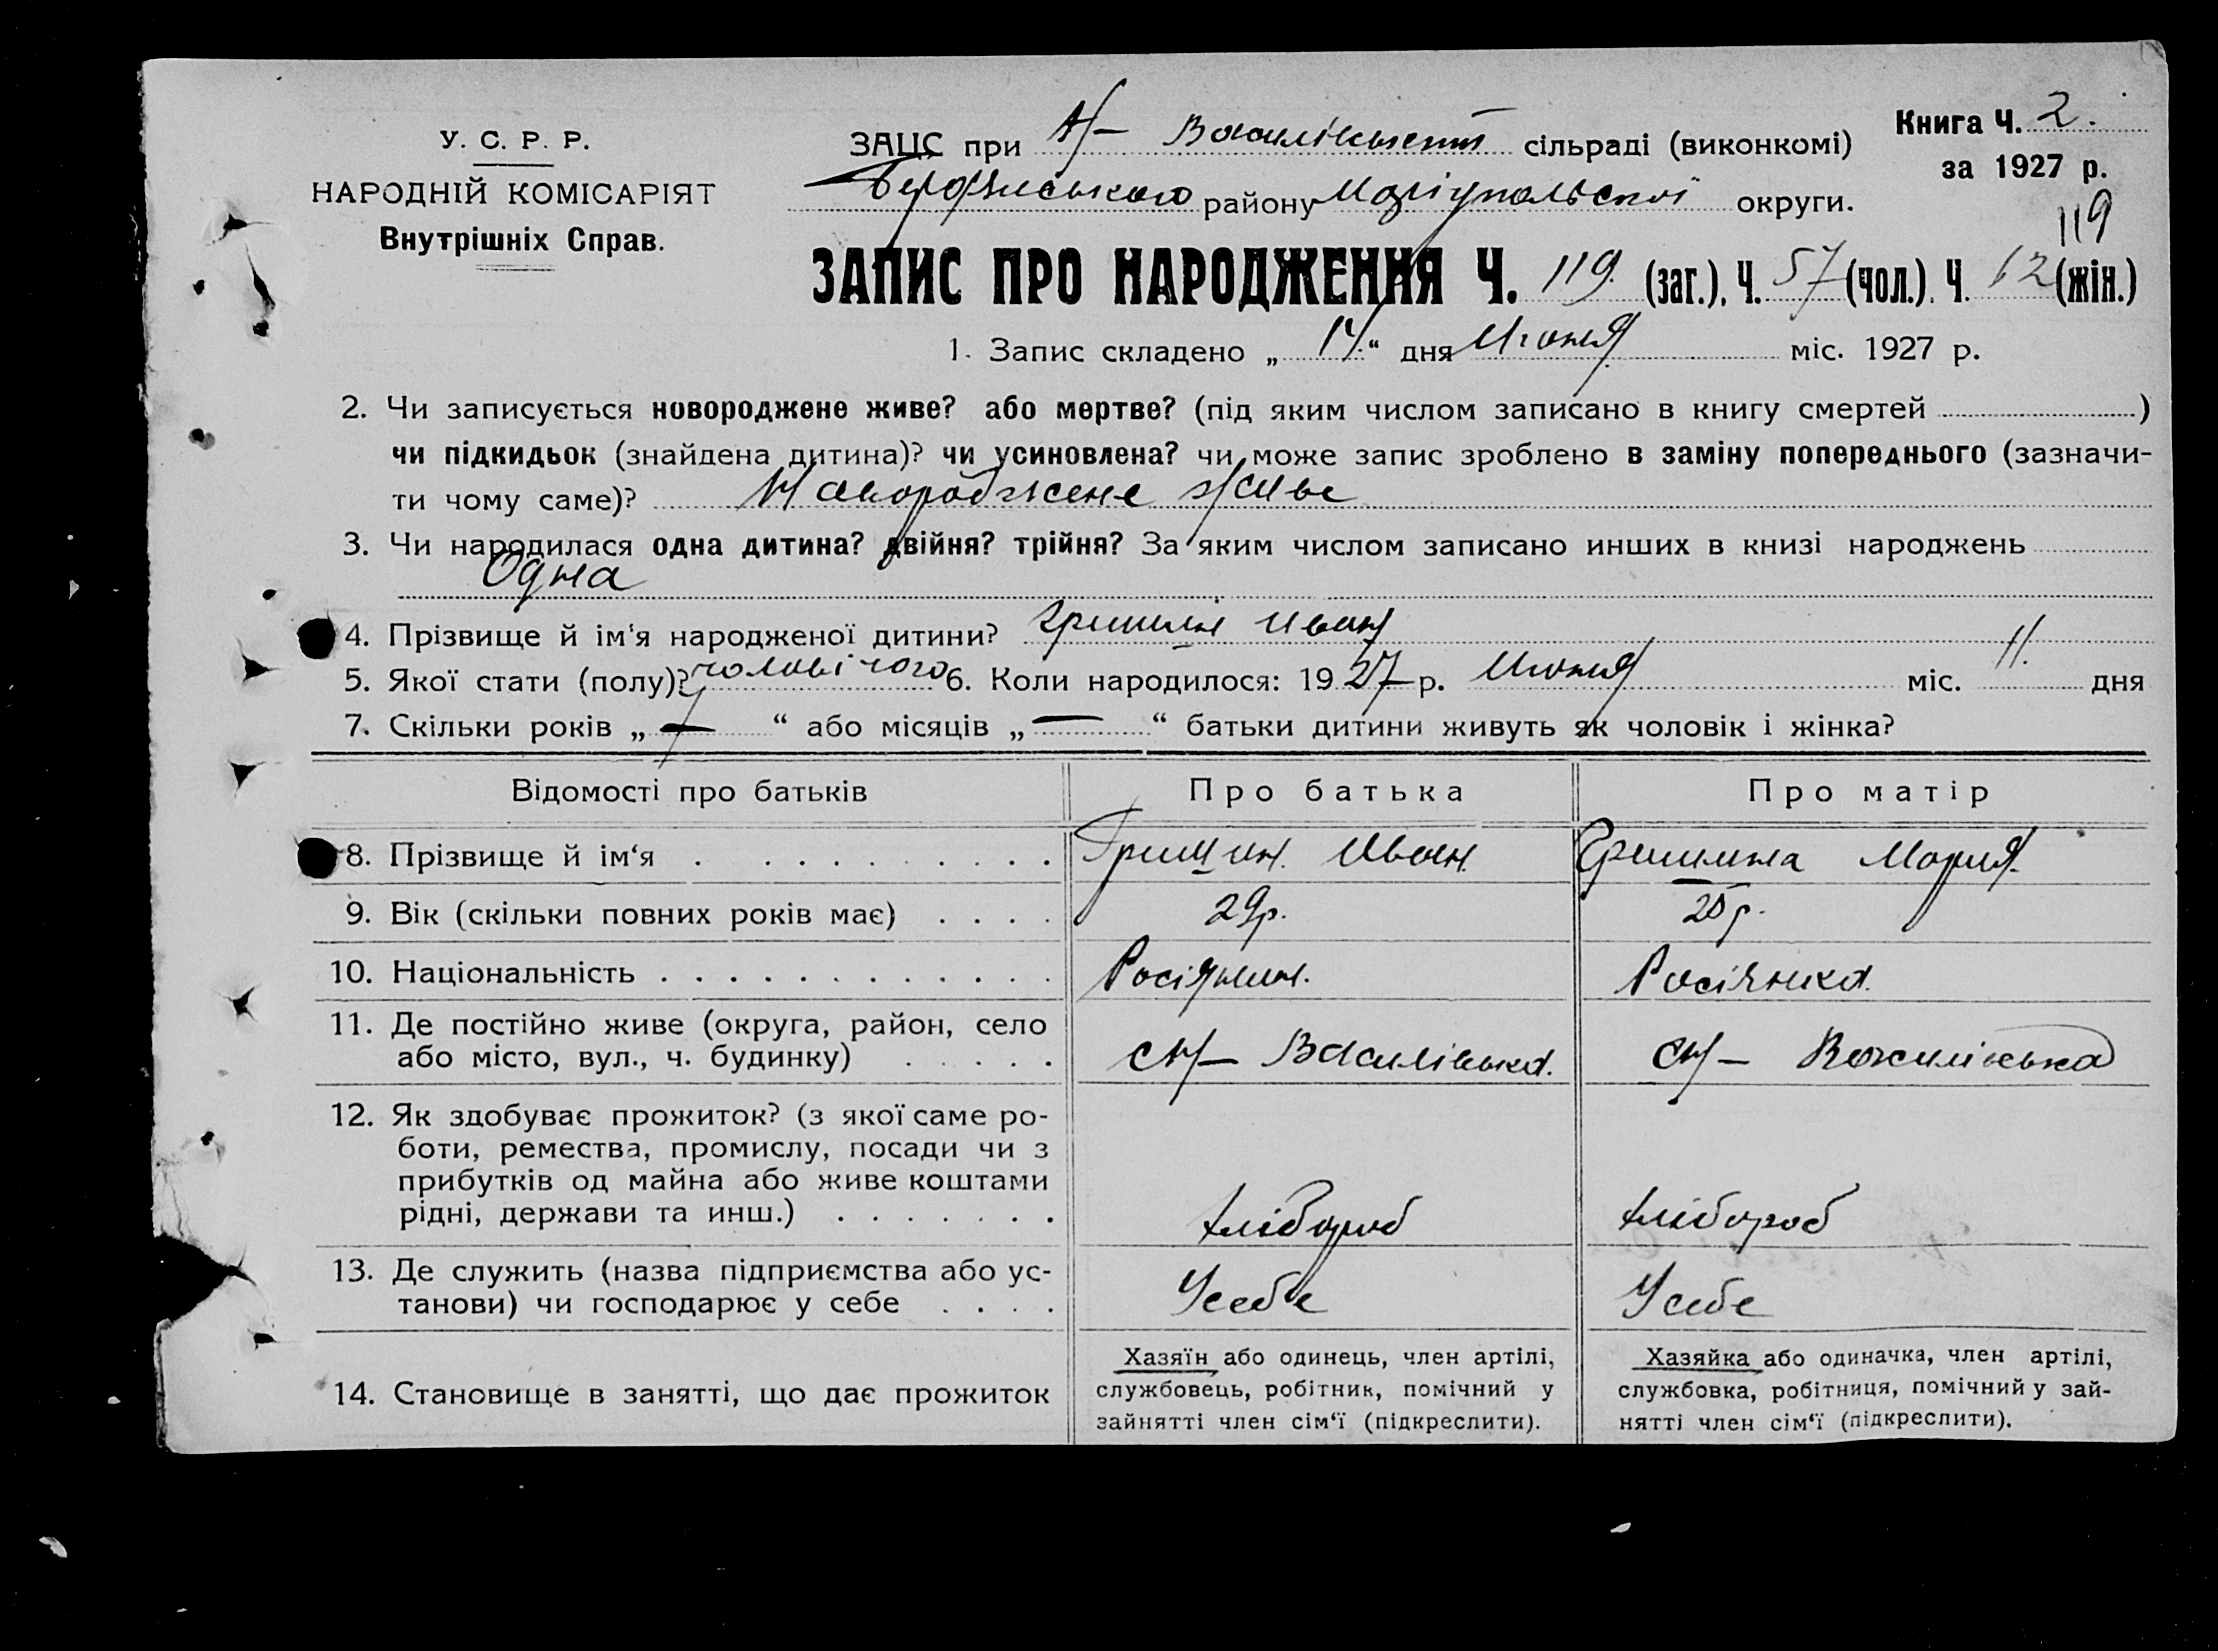 У. С. Р. Р.
НАРОДНІЙ КОМІСАРІЯТ
Внутрішніх Справ.
ЗАЦС при Н- Василівській сільраді (виконкомі)
Бердянського району Маріупольскої округи.
Книга Ч. 2.
за 1927 р.
119
ЗАПИС ПРО НАРОДЖЕННЯ Ч. 119. (заг.). Ч. 57 (чол.). Ч. 62 (жін.)
1. Запис складено „ 14. “ дня Июня міс. 1927 р.
2. Чи записується новороджене живе? або мертве? (під яким числом записано в книгу смертей )
чи підкидьок (знайдена дитина)? чи усиновлена? чи може запис зроблено в заміну попереднього (зазначи-
ти чому саме)? Новороджене живе
3. Чи народилася одна дитина? двійня? трійня? За яким числом записано инших в книзі народжень
Одна
4. Прізвище й ім‘я народженої дитини? Гришин Иван
5. Якої стати (полу)? чоловічого 6. Коли народилося: 1927 р. Июня міс. 11. дня
7. Скільки років „ — “ або місяців „ — “ батьки дитини живуть як чоловік і жінка?
Відомості про батьків Про батька Про матір
8. Прізвище й ім‘я Гришин. Иван. Гришина Мария.
9. Вік (скільки повних років має) 29р. 25 р.
10. Національність Росіянин. Росіянка.
11. Де постійно живе (округа, район, село
або місто, вул., ч. будинку) с Н- Василівка. с Н- Василівка
12. Як здобуває прожиток? (з якої саме ро-
боти, ремества, промислу, посади чи з
прибутків од майна або живе коштами
рідні, держави та инш.) хлібороб хлібороб
13. Де служить (назва підприємства або ус-
танови) чи господарює у себе У себе У себе
14. Становище в занятті, що дає прожиток
Хазяїн або одинець, член артілі,
службовець, робітник, помічний у
зайнятті член сім‘ї (підкреслити).
Хазяйка або одиначка, член артілі,
службовка, робітниця, помічний у зай-
нятті член сім‘ї (підкреслити).